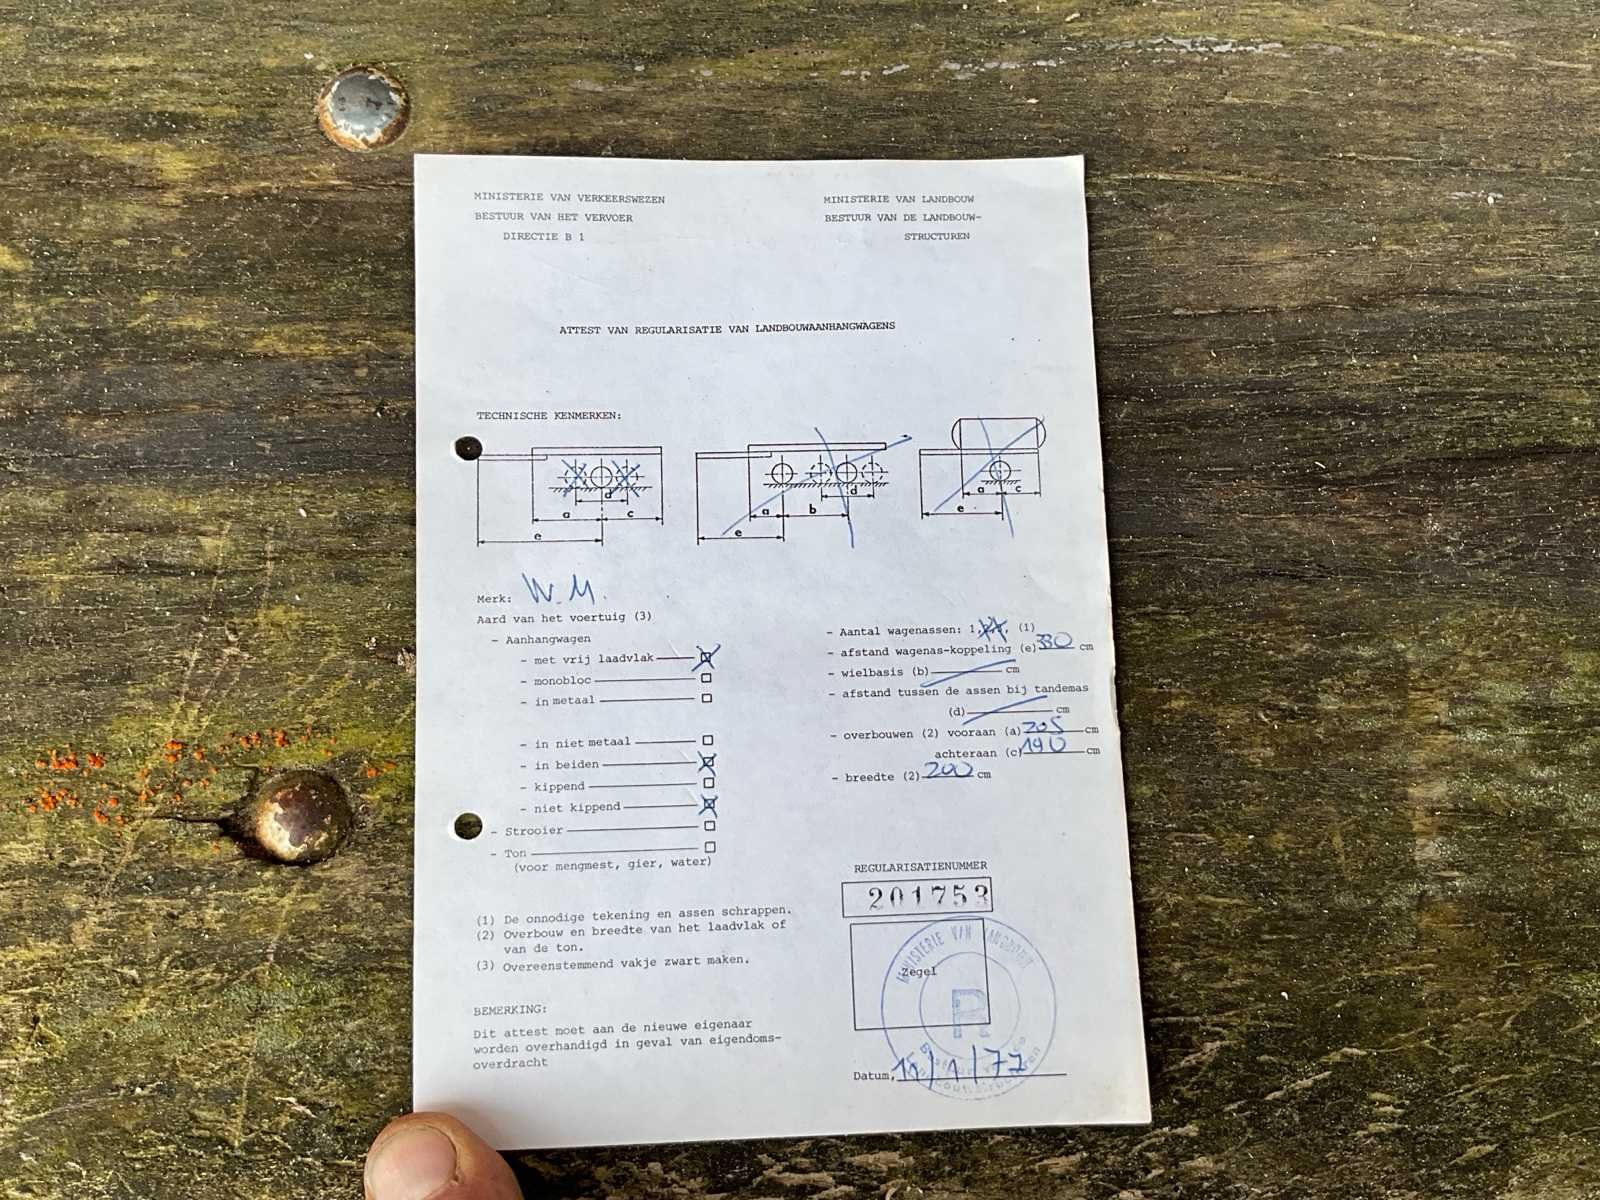 MINISTERIE VAN VERKEERSWEZEN
BESTUUR VAN HET VERVOER
DIRECTIE B 1
MINISTERIE VAN LANDBOUW
BESTUUR VAN DE LANDBOUW-
STRUCTUREN
ATTEST VAN REGULARISATIE VAN LANDBOUWAANHANGWAGENS
TECHNISCHE KENMERKEN:
d
a c
e
d
a b
e
a c
e
Merk: W.M.
Aard van het voertuig (3)
- Aanhangwagen
- met vrij laadvlak
- monobloc
- in metaal
- in niet metaal
- in beiden
- kippend
- niet kippend
- Strooier
- Ton
(voor mengmest, gier, water)
- Aantal wagenassen: 1, (1)
- afstand wagenas-koppeling (e) 330 cm
- wielbasis (b) cm
- afstand tussen de assen bij tandemas
(d) cm
- overbouwen (2) vooraan (a) 205 cm
achteraan (c) 190 cm
- breedte (2) 200 cm
(1) De onnodige tekening en assen schrappen.
(2) Overbouw en breedte van het laadvlak of
van de ton.
(3) Overeenstemmend vakje zwart maken.
BEMERKING:
Dit attest moet aan de nieuwe eigenaar
worden overhandigd in geval van eigendoms-
overdracht
REGULARISATIENUMMER
201753
MINISTERIE VAN LANDBOUW
Zegel
R
Datum, 15/1/77